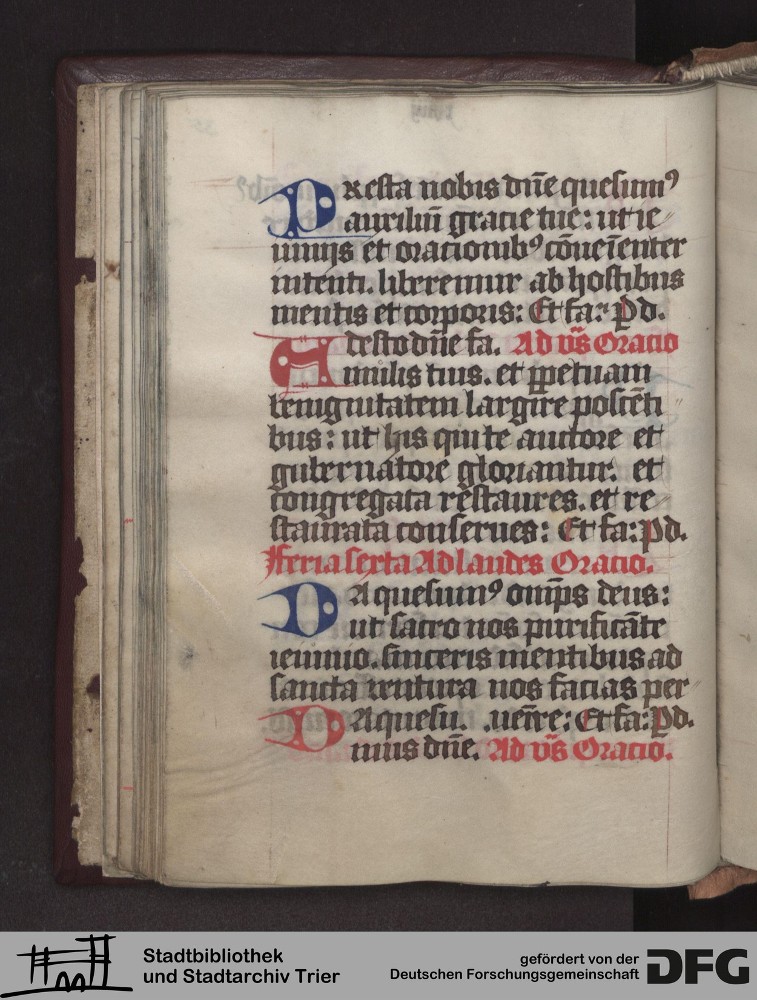 Presta nobis dn̄e quesumꝰ
auxiliū gracie tue: ut ie
iunijs et oracionibꝰ cōueiēnter
intenti. liberemur ab hostibus
mentis et corporis: Et fa: Pd.
Adesto dn̄e fa. Ad vs̄ Oracio
imilis tuis. et ꝑpetuam
benignitatem largire poscēti
bus: ut his qui te auctore et
gubernatore gloriantur: et
congregata restaures. et re
staurata conserues: Et fa: pd.
Feria sexta Ad laudes Oracio.
Da quesumꝰ omīps deus:
ut sacro nos purificāte
ieiunio. sinceris mentibus ad
sancta uentura nos facias per
Da quesu. uenīre: Et fa: Pd.
mus dn̄e. Ad vs̄ Oracio.
Stadtbibliothek
und Stadtarchiv Trier
gefördert von der
Deutschen Forschungsgemeinschaft
DFG